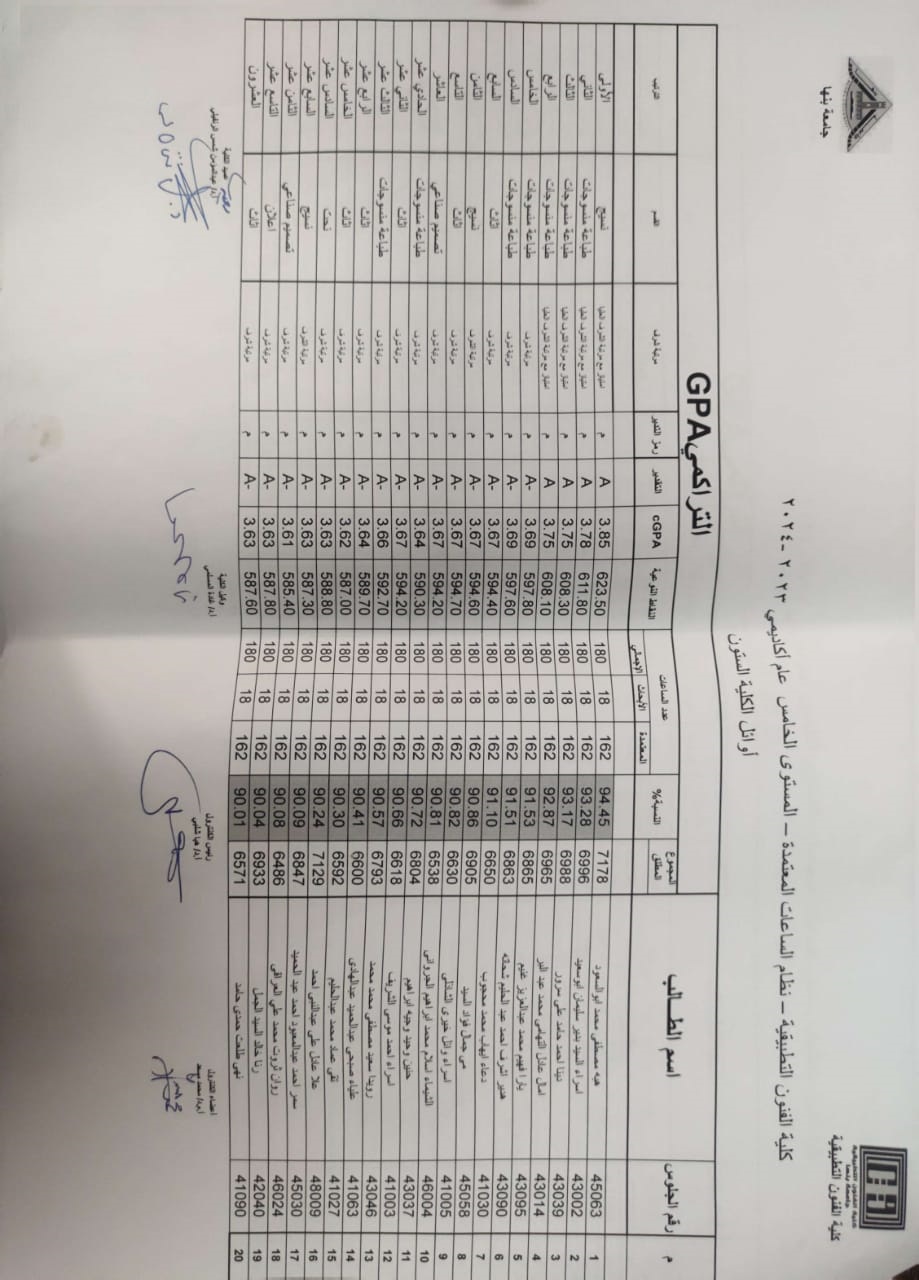 جامعة بنها
كلية الفنون التطبيقية
كلية الفنون التطبيقية – نظام الساعات المعتمدة – المستوى الخامس عام أكاديمي ٢٠٢٣-٢٠٢٤
أوائل الكلية الستون
التراكمي GPA
م رقم الجلوس اسم الطالب المجموع المطلق النسبة% عدد الساعات المعتمدة الأبحاث الإجمالي النقاط النوعية cGPA التقدير رمز التقدير مرتبة شرف القسم الترتيب
1 45063 هبه مصطفى محمد ابو السعود 7178 94.45 162 18 180 623.50 3.85 A م امتياز مع مرتبة الشرف العليا نسيج الأولى
2 43002 اسراء السيد بنير سليمان ابوسعيد 6996 93.28 162 18 180 611.80 3.78 A م امتياز مع مرتبة الشرف العليا طباعة منسوجات الثاني
3 43039 دينا احمد حامد على سرور 6988 93.17 162 18 180 608.30 3.75 A م امتياز مع مرتبة الشرف العليا طباعة منسوجات الثالث
4 43014 امال عادل التهامى محمد عبد البر 6965 92.87 162 18 180 608.10 3.75 A م امتياز مع مرتبة الشرف العليا طباعة منسوجات الرابع
5 43095 يارا فهيم محمد عبدالعزيز غنيم 6865 91.53 162 18 180 597.80 3.69 A- م مرتبة شرف طباعة منسوجات الخامس
6 43090 هدير اشرف احمد عبد الحليم شحته 6863 91.51 162 18 180 597.60 3.69 A- م مرتبة شرف طباعة منسوجات السادس
7 41030 دعاء ايهاب محمد محجوب 6650 91.10 162 18 180 594.40 3.67 A- م مرتبة شرف اثاث السابع
8 45058 مى جمال فؤاد السيد 6905 90.86 162 18 180 594.60 3.67 A- م مرتبة الشرف نسيج الثامن
9 41005 اسراء وائل خيرى الشاذلى 6630 90.82 162 18 180 594.70 3.67 A- م مرتبة شرف اثاث التاسع
10 46004 الشيماء اسلام محمد ابراهيم الجروانى 6538 90.81 162 18 180 594.20 3.67 A- م مرتبة شرف تصميم صناعي العاشر
11 43037 حنين وحيد وجيه ابراهيم 6804 90.72 162 18 180 590.30 3.64 A- م مرتبة شرف طباعة منسوجات الحادي عشر
12 41003 اسراء احمد موسى الشريف 6618 90.66 162 18 180 594.20 3.67 A- م مرتبة شرف اثاث الثاني عشر
13 43046 روينا سعيد مصطفى محمد محمد 6793 90.57 162 18 180 592.70 3.66 A- م مرتبة شرف طباعة منسوجات الثالث عشر
14 41063 علياء صبحى عبدالحميد عبدالهادى 6600 90.41 162 18 180 589.70 3.64 A- م مرتبة شرف اثاث الرابع عشر
15 41027 تقى عماد محمد عبدالحليم 6592 90.30 162 18 180 587.00 3.62 A- م مرتبة شرف اثاث الخامس عشر
16 48009 علا عادل على عبدالنبى احمد 7129 90.24 162 18 180 588.80 3.63 A- م مرتبة شرف نحت السادس عشر
17 45030 سمر احمد عبدالمعبود احمد عبد الحميد 6847 90.09 162 18 180 587.30 3.63 A- م مرتبة الشرف نسيج السابع عشر
18 46024 روان ثروت محمد علي العراقي 6486 90.08 162 18 180 585.40 3.61 A- م مرتبة شرف تصميم صناعي الثامن عشر
19 42040 رنا خالد السيد الجمل 6933 90.04 162 18 180 587.80 3.63 A- م مرتبة شرف اعلان التاسع عشر
20 41090 نهى طلعت حمدى حامد 6571 90.01 162 18 180 587.60 3.63 A- م مرتبة شرف اثاث العشرون
اعضاء الكنترول
رئيس الكنترول
وكيل الكلية
عميد الكلية